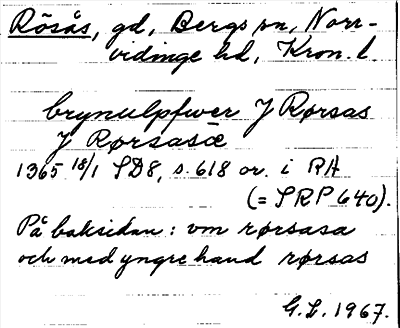 Rösås, gd, Bergs sn, Norr-
vidinge hd, Kron. l.
brynulpfwer J Rørsas
J Rørsasæ
1365 18/1 SD8, s. 618 or. i RA
(= SRP 640).
På baksidan: vm rørsasa
och med yngre hand rørsas
G.L. 1967.